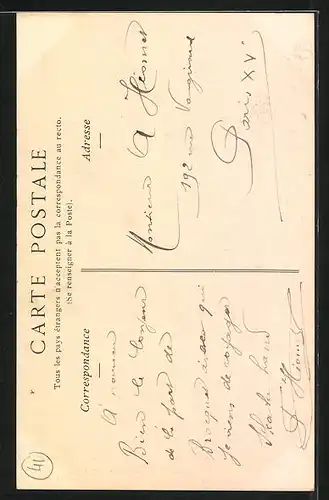 CARTE POSTALE
Tous les pays étrangers n'acceptent pas la correspondance au recto.
(Se renseigner à la Poste).
Correspondance
Adresse
Bien le bonjour
de la part de
avec qui
je viens de voyager
Monsieur A
192 rue
Paris XV
41